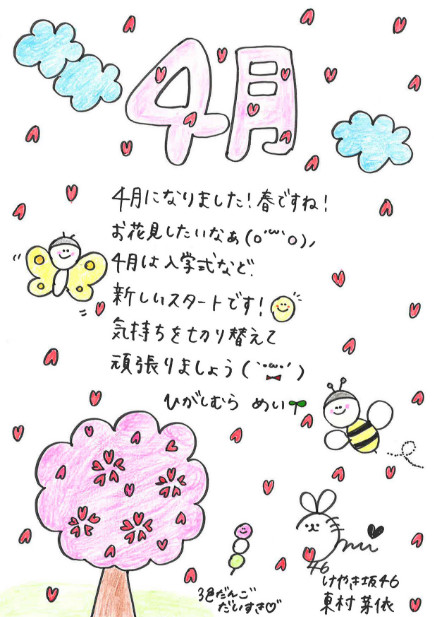 4月
4月になりました!春ですね!
お花見したいなぁ(o'ω'o)ﾉ
4月は入学式など
新しいスタートです!
気持ちを切り替えて
頑張りましょう(`・ω・´)
ひがしむら めい
3色だんご
だいすき♡
46
けやき坂46
東村芽依